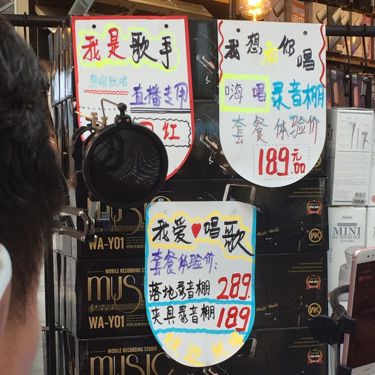 我是歌手
想唱就唱
直播专用
红
我想和你唱
嗨唱 录音棚
套餐体验价
189元
我爱❤唱歌
套餐体验价:
落地录音棚 289
夹具录音棚 189
MOBILE RECORDING STUDIO
music
WA-Y01
MOBILE RECORDING STUDIO
music
WA-Y01
MOBILE RECORDING STUDIO
music
WK
MINI